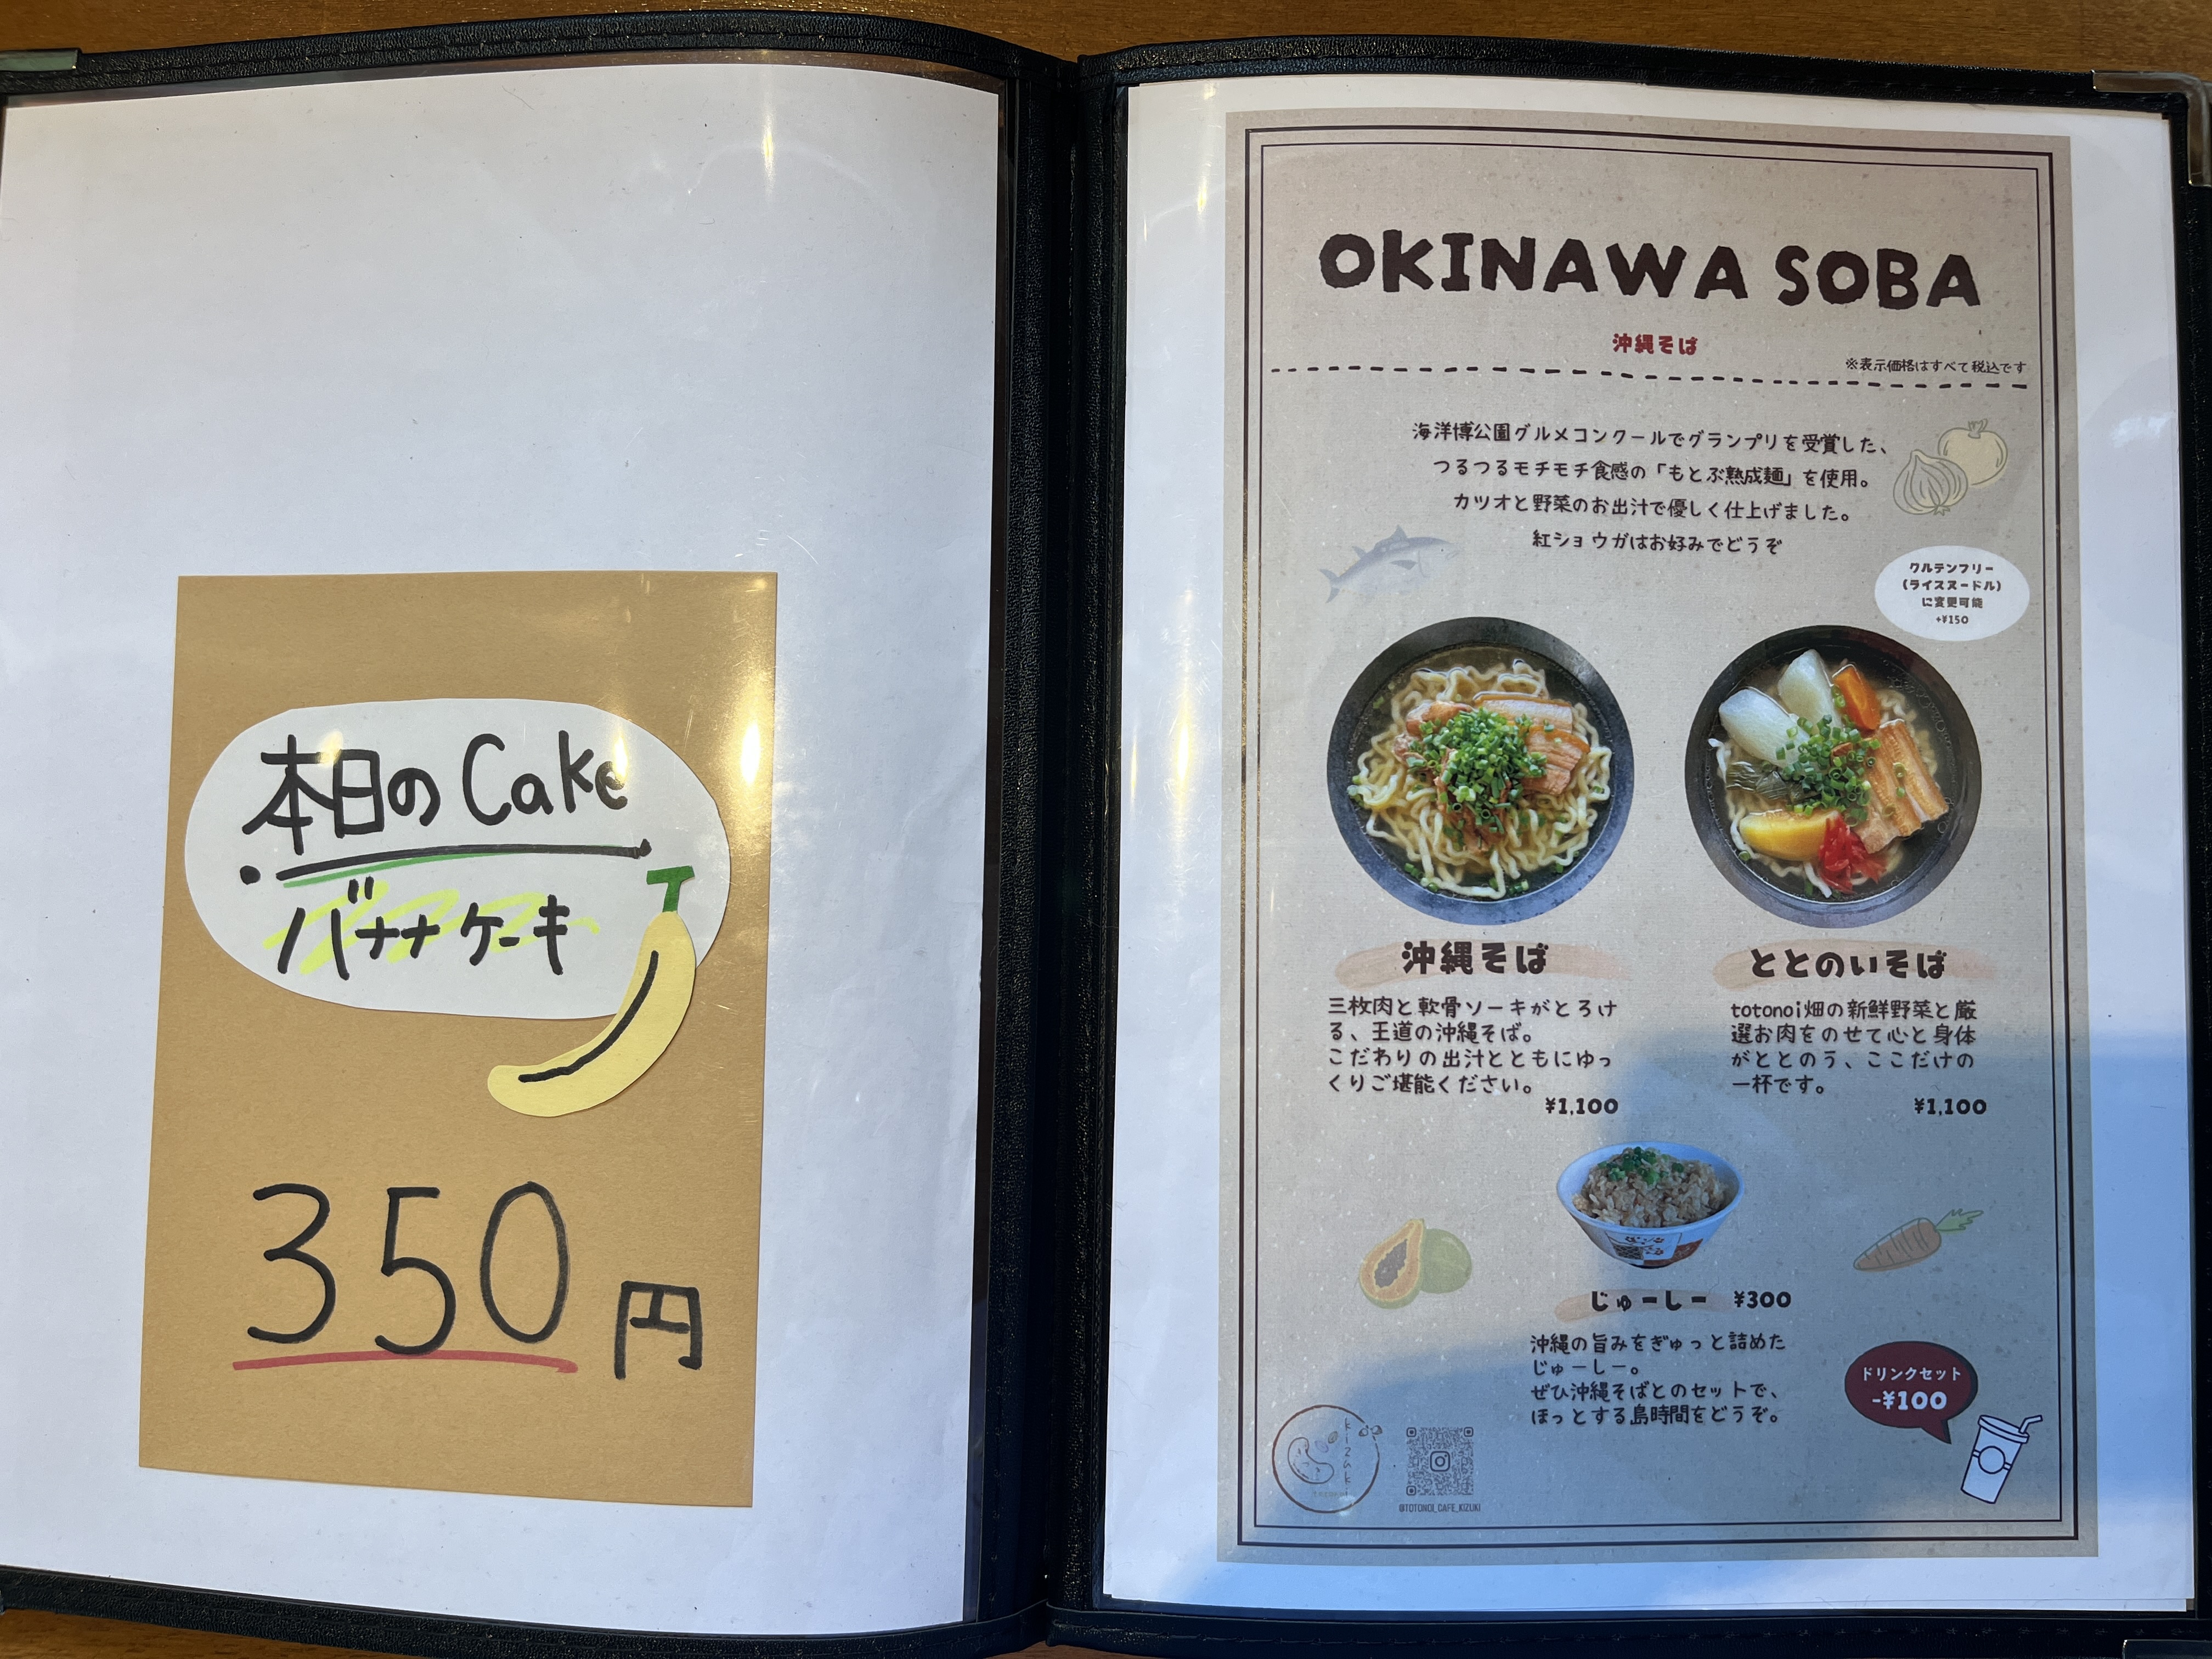 本日のCake
バナナケーキ
350円
OKINAWA SOBA
沖縄そば
※表示価格はすべて税込です
海洋博公園グルメコンクールでグランプリを受賞した、
つるつるモチモチ食感の「もとぶ熟成麺」を使用。
カツオと野菜のお出汁で優しく仕上げました。
紅ショウガはお好みでどうぞ
グルテンフリー
(ライスヌードル)
に変更可能
+¥150
沖縄そば
三枚肉と軟骨ソーキがとろけ
る、王道の沖縄そば。
こだわりの出汁とともにゆっ
くりご堪能ください。
¥1,100
ととのいそば
totonoi畑の新鮮野菜と厳
選お肉をのせて心と身体
がととのう、ここだけの
一杯です。
¥1,100
じゅーしー ¥300
沖縄の旨みをぎゅっと詰めた
じゅーしー。
ぜひ沖縄そばとのセットで、
ほっとする島時間をどうぞ。
ドリンクセット
-¥100
kizuki
@TOTONOI_CAFE_KIZUKI